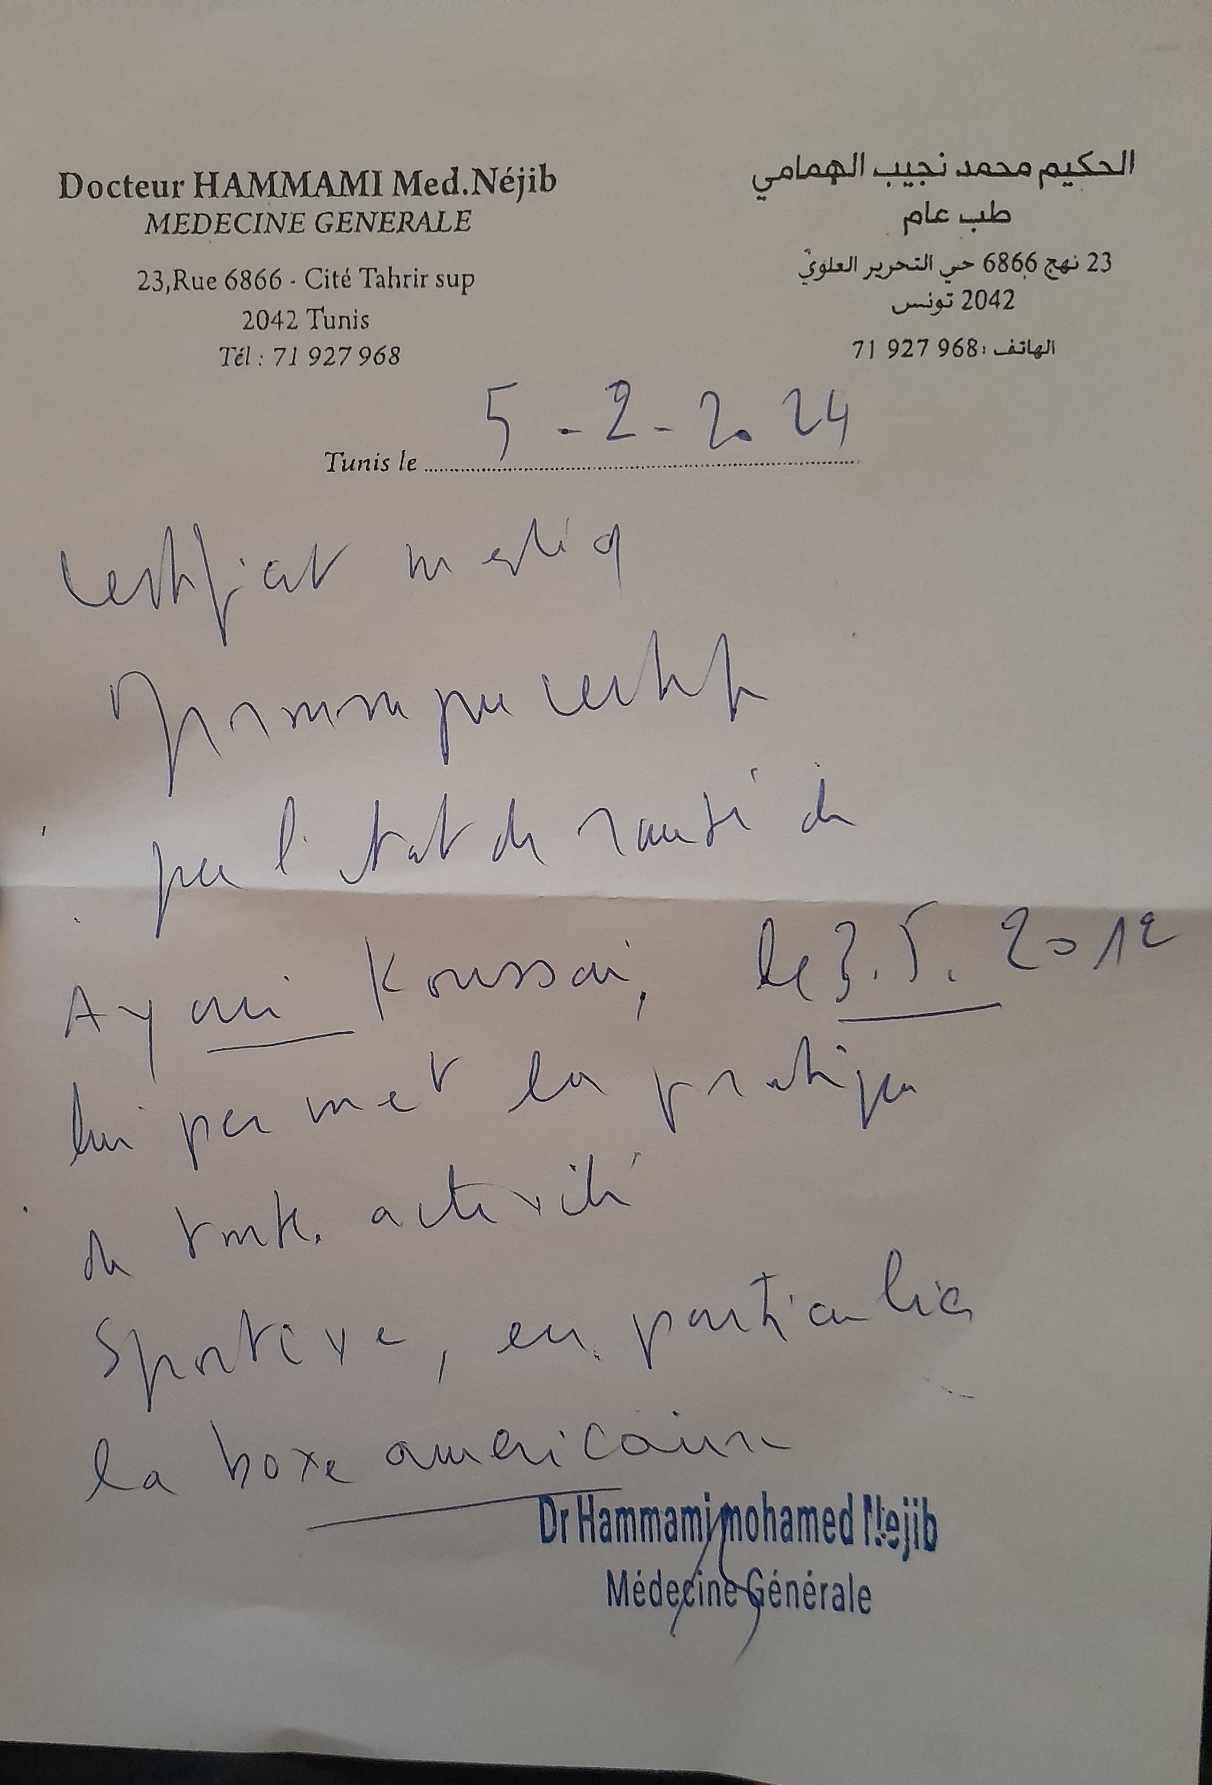 Docteur HAMMAMI Med.Néjib
MEDECINE GENERALE
23,Rue 6866 - Cité Tahrir sup
2042 Tunis
Tél : 71 927 968
الحكيم محمد نجيب الهمامي
طب عام
23 نهج 6866 حي التحرير العلوي
2042 تونس
الهاتف : 71 927 968
Tunis le 5-2-2024
Certificat
certifie
que l'état de santé de
Ayari Koussai, le 3.5.2012
lui permet la pratique
de toute activité
Sportive, en particulier
la boxe americaine
Dr Hammami mohamed Nejib
Médecine Générale